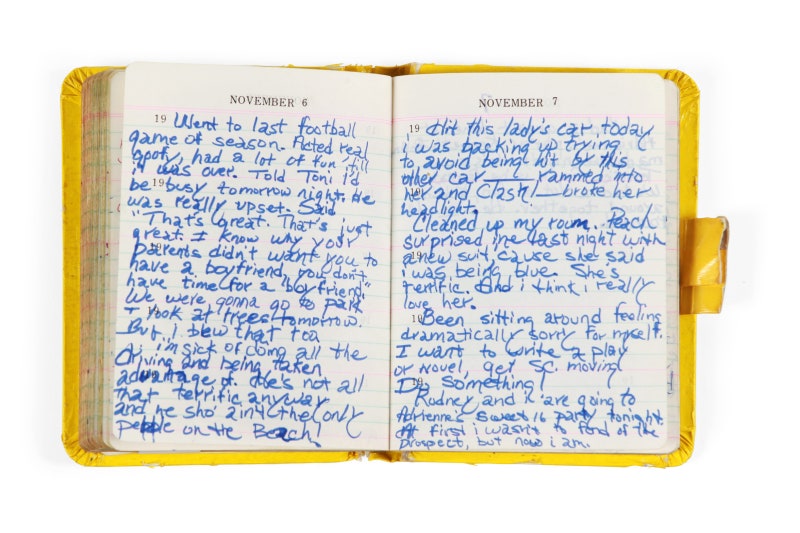 NOVEMBER 6
19 Went to last football
game of season. Acted real
goofy, had a lot of fun, till
it was over. Told Toni I'd
be busy tomorrow night. He
was really upset. Said
"That's great. That's just
great. I know why your
parents didn't want you to
have a boyfriend, you don't
have time for a boyfriend."
We were gonna go to park
+ look at trees tomorrow.
But I blew that too
i'm sick of doing all the
driving and being taken
advantage of. He's not all
that terrific anyway
and he sho' ain't the only
people on the Beach!
NOVEMBER 7
19 Hit this lady's car today
i was backing up trying
to avoid being hit by this
other car — i rammed into
her and Clash! — broke her
headlight.
Cleaned up my room. Peach
surprised me last night with
a new suit, cause she said
i was being blue. She's
terrific. And i think i really
love her.
19 Been sitting around feeling
dramatically sorry for myself.
I want to write a play
or novel, get SC. moving
Do something!
Rodney and i are going to
Adrienne's sweet 16 party tonight.
At first i wasn't to fond of the
prospect, but now i am.